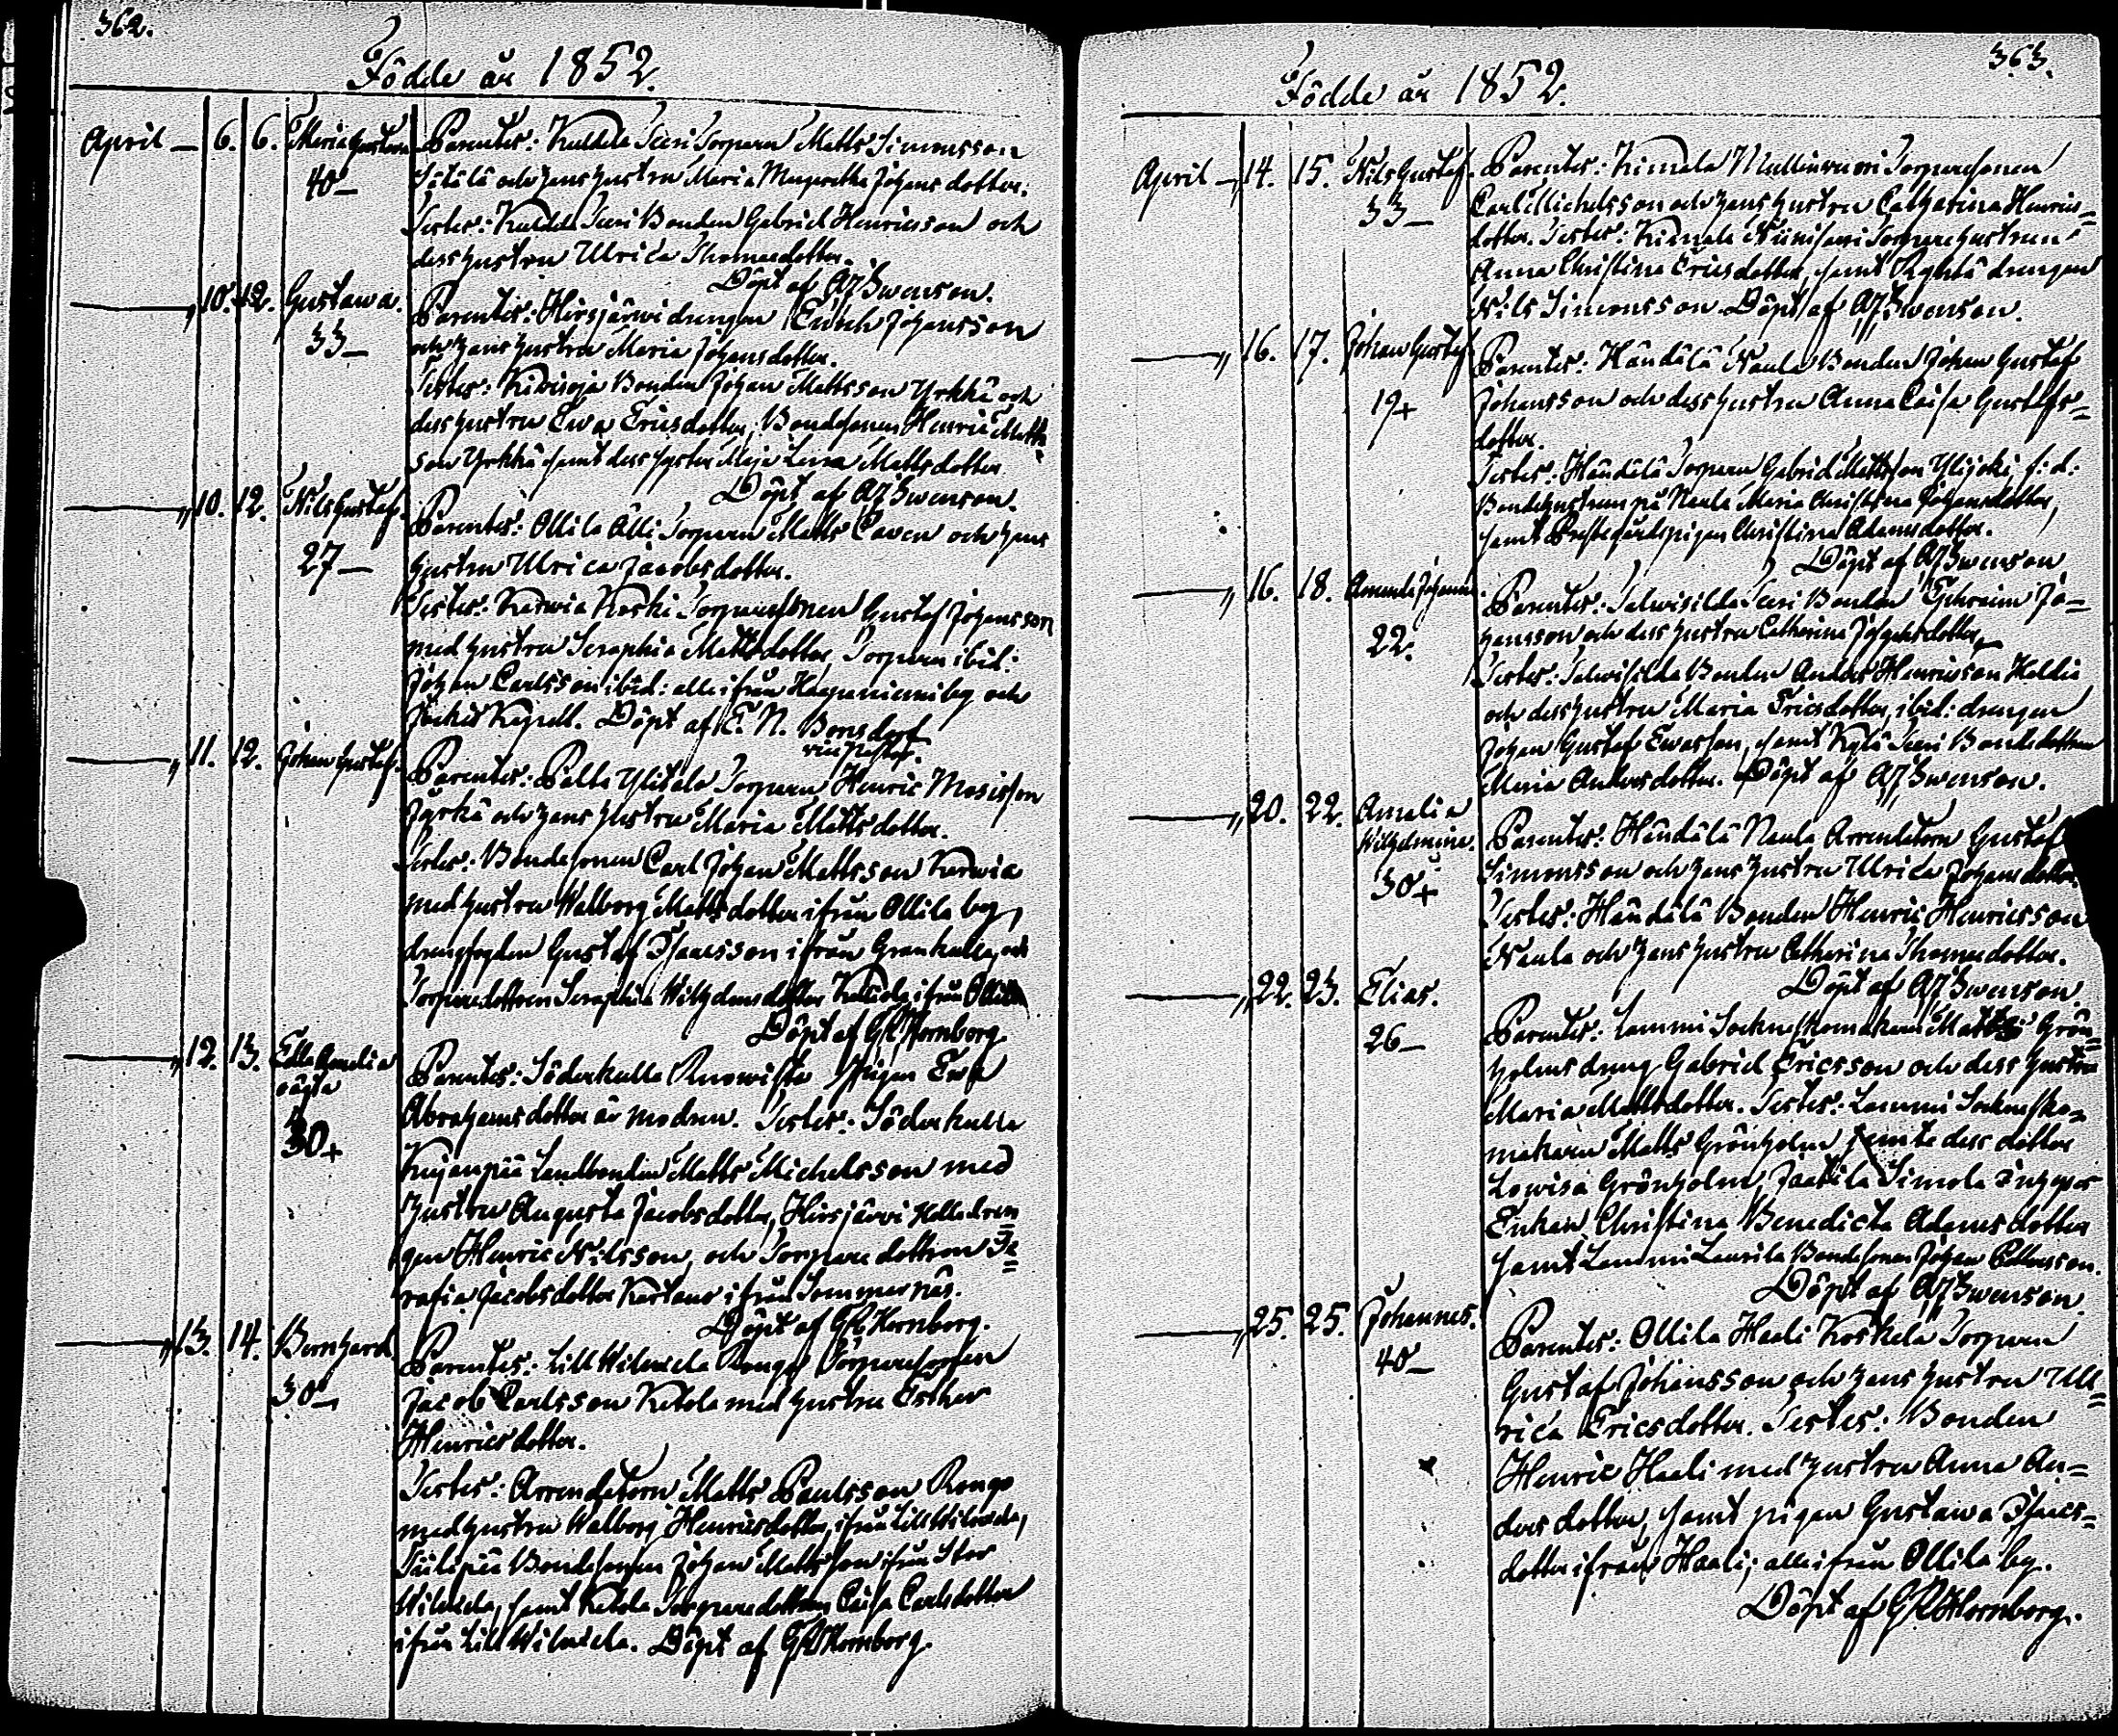 362.
Födde år 1852.
April — 6. 6. Maria Gustava Parentes: Kuldila Seeri Torparen Matts Simonsson
40— och hans hustru Maria Margretha Johansdotter.
Testes: Kuldila Seeri Bonden Gabriel Henricsson och
dess hustru Ulrica Thomasdotter.
Döpt af AJSwenson.
—„ 10. 12. Gustawa. Parentes: Hirsjärwi drengen Enoch Johansson
33— och hans hustru Maria Johansdotter.
Testes: Kiwioja Bonden Johan Mattsson Yrkkä och
dess hustru Ewa Ericsdotter, Bondesonen Henric Matts
son Yrkkä samt dess syster Maja Lisa Mattsdotter
Döpt af AJSwenson.
—„ 10. 12. Nils Gustaf. Parentes: Ollila Älli Torparen Matts Caven och hans
27— hustru Ulrica Jacobsdotter.
Testes: Karwia Koski Torparesonen Gustaf Johansson
med hustru Seraphia Mattsdotter, Torparen ibid:
Johan Carlsson ibid: alla ifrån Haapaniemi by och
Kapell. Döpt af E. N. Bonsdorf
—„ 11. 12. Johan Gustaf. Parentes: Palta Ylitalo Torparen Henric Mosisson
Jyrkä och hans hustru Maria Mattsdotter.
Testes: Bondesonen Carl Johan Mattsson Karwia
med hustru Walborg Mattsdotter ifrån Ollila by,
drengfogden Gustaf Isacsson ifrån Grankulla, och
Torparedottren Seraphia Wilhelmsdotter ifrån Ollila
Döpt af GRHornborg.
—„ 12. 13. Edla Amalia Parentes: Söderkulla Pigan Ewa
oägta Abrahamsdotter är modren. Testes: Söderkulla
30+ Kujanpää Landbonden Matts Michelsson med
hustru Augusta Jacobsdotter, Hirsjärvi Kalledren
gen Henric Nilsson, och Torparedottren Se
rafia Jacobsdotter Kartano ifrån Sommarnäs.
Döpt af GRHornborg.
—„ 13. 14. Bernhard Parentes: Lill Wiluxela Rengo Torparesonen
30— Jacob Carlsson Ketola med hustru Esther
Henricsdotter.
Testes: Arrendatorn Matts Paulsson Rengo
med hustru Walborg Henricsdotter, ifrån Lill Wiluxela,
Bondesonen Johan Mattsson ifrån Stor
Wiluxela, samt Ketola Torparedottren Caisa Carlsdotter
ifrån Lill Wiluxela. Döpt af GRHornborg.
363.
Födde år 1852.
April — 14. 15. Nils Gustaf. Parentes: Kimala Mullinvuori Torparesonen
33— Carl Michelsson och hans hustru Catharina Henrics=
dotter. Testes: Kimala Torparehustrun
Anna Christina Ericsdotter, samt drengen
Nils Simonsson. Döpt af AJSwenson.
—„ 16. 17. Johan Gustaf. Parentes: Händälä Naula Bonden Johan Gustaf
19+ Johansson och dess hustru Anna Caisa Gustafs=
dotter.
Testes: Händälä Torparen Gabriel Mattsson Ylijoki, f: d:
Bondehustrun på Naula Maria Christina Johansdotter,
samt Prestegårdspigan Christina Adamsdotter.
Döpt af AJSwenson
—„ 16. 18. Amanda Johanna Parentes: Talwisilda Seeri Bonden Ephraim Jo=
22. hansson och dess hustru Catharina Johansdotter,
Testes: Talwisilda Bonden Anders Henricsson Heldia
och dess hustru Maria Ericsdotter, ibid: drengen
Johan Gustaf Ewasson, samt Kylä Seeri Bondedottren
Maria Andersdotter. Döpt af AJSwenson.
—„ 20. 22. Amalia
Wilhelmina. Parentes: Händälä Naula Arrendatorn Gustaf
30+ Simonsson och hans hustru Ulrica Johansdotter.
Testes: Händälä Bonden Henric Henricsson
Naula och hans hustru Catharina Thomasdotter.
Döpt af AJSwenson.
—„ 22. 23. Elias. Parentes: Lammi Sockneskomakaren Matts Grön=
26— holms dreng Gabriel Ericsson och dess hustru
Maria Mattsdotter. Testes: Lammi Socknesko=
makaren Matts Grönholm samt dess dotter
Lowisa Grönholm, Jaakila Simola
Enkan Christina Benedicta Adamsdotter
samt Lammi Laurila Bondesonen Johan
Döpt af AJSwenson.
—„ 25. 25. Johannes. Parentes: Ollila Haali Koskela Torparen
40— Gustaf Johansson och hans hustru Ull=
rica Ericsdotter. Testes: Bonden
Henric Haali med hustru Anna An=
dersdotter, samt pigan Gustawa Isacs=
dotter ifrån Haali; alla ifrån Ollila by.
Döpt af GRHornborg.